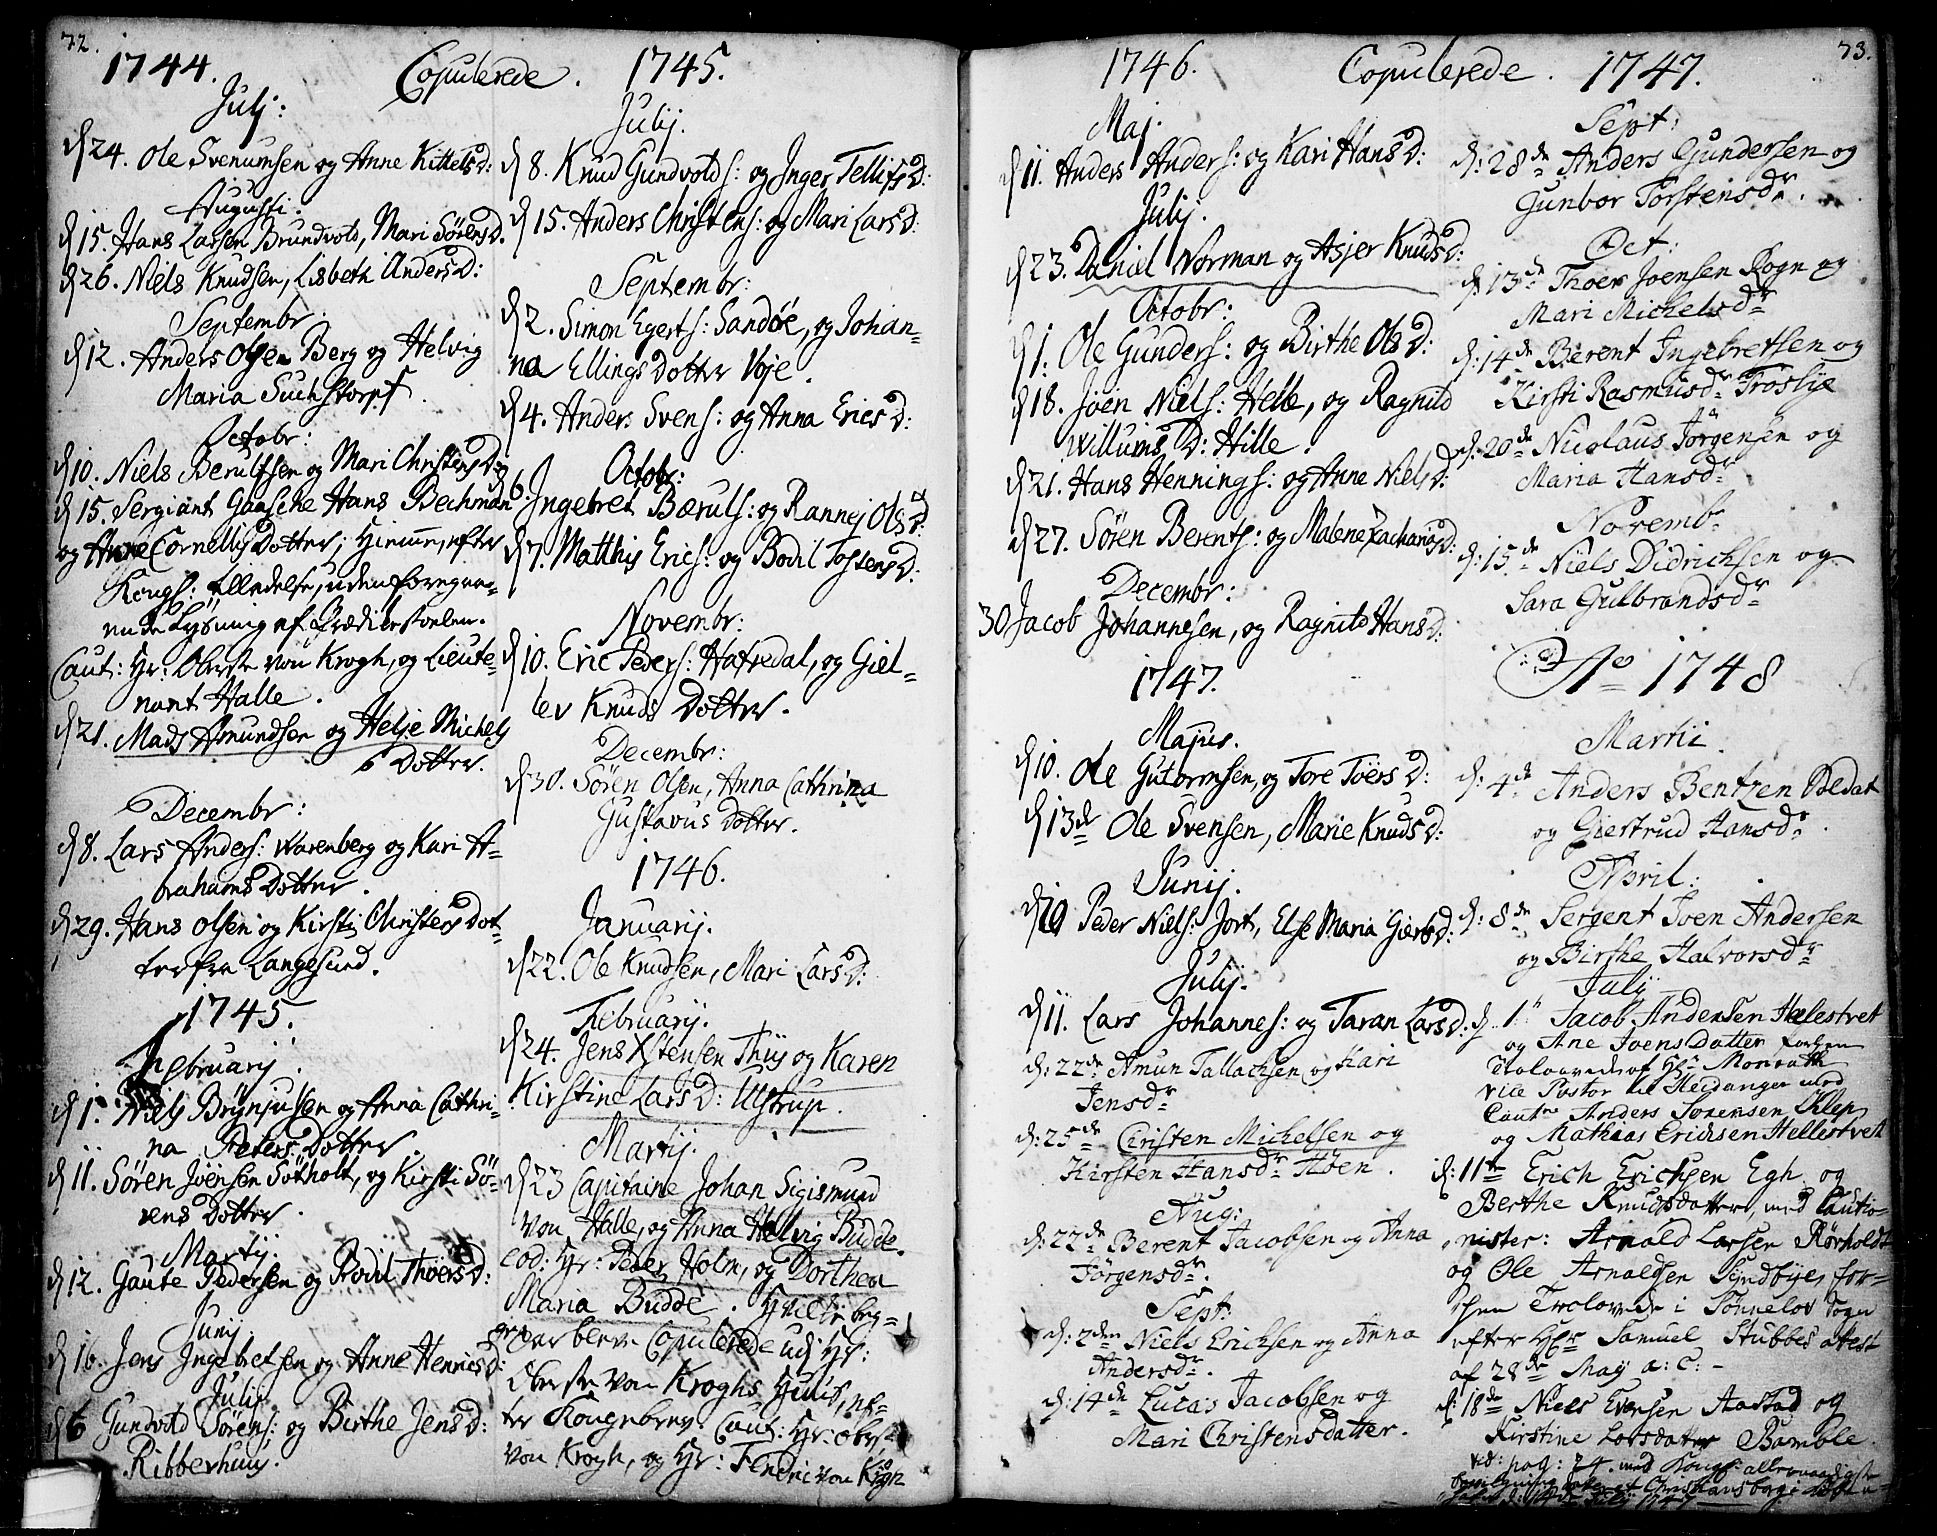 72.
1744. Copulerede. 1745.
Julj:
d 24. Ole Svenumsen og Anne Kittels D:
Augusti.
d 15. Hans Larsen Brundvold, Mari Sörens D.
d 26. Niels Knudsen, Lisbeth Anders D:
Septembr.
d 12. Anders Olsen Berg og Helvig
Maria Suchstorpf.
Octobr:
d 10. Niels Berulfsen og Mari Christens D:
d 15. Sergiant Hans Bechman
og Anne Cornellis Dotter, Hiemme, efter
Kongl: Tilladelse, uden foregaa-
ende Lysning af Prædikestoelen.
Caut: Hr: Oberste von Krogh, og Lieute-
nant Halle.
d 21. Mads Amundsen og Helje Michels
Dotter.
Decembr:
d 8. Lars Anders: Warenberg og Kari A-
brahams Dotter.
d 29. Hans Olsen og Kirsti Christens Dot-
ter fra Langesund.
1745.
Februarij.
d 1. Niels Brynjulsen og Anna Cathri-
na Peters Dotter
d 11. Sören Jöensen Sötholt, og Kirsti Sö-
rens Dotter.
Martij.
d 12. Gaute Pedersen og Bodil Thöers D:
Junij
d 16. Jens Ingebretsen og Anne Henrics D:
Julij
d 6 Gundvold Sörens: og Birthe Jens D:
Ribberhuus.
Julij.
d 8. Knud Gundvolds: og Inger Tellifs D:
d 15. Anders Christens: og Mari Lars D:
Septembr:
d 2. Simon Egerts: Sandöe, og Johan-
na Ellings Dotter Voje.
d 4. Anders Svens: og Anna Erics D:
Octobr:
6. Ingebret Bæruls: og Rannej Ols D:
d 7. Matthis Erics: og Bodil Tostens D:
Novembr:
d 10. Eric Peders: Hafredal, og Giel-
lev Knuds Dotter.
Decembr:
d 30. Sören Olsen, Anna Cathrina
Gustavus Dotter.
1746.
Januarij.
d 22. Ole Knudsen, Mari Lars D:
Februarij.
d 24. Jens Xstensen Thiy og Karen
Kirstine Lars D: Ulstrup.
Martij.
d 23 Capitaine Johan Sigismund
von Halle, og Anna Helvig Budde.
eod: Hr: Peder Holm, og Dorthea
Maria Budde. Hvilke beg-
ge par bleve Copulerede udj Hr:
Oberste von Kroghs Huus, ef-
ter Kongebrev. Caut: Hr: Oberste
von Krogh, og Hr: Fendric von Krogh
73.
1746. Copulerede. 1747.
Maj.
d 11. Anders Anders: og Kari Hans D:
Julij.
d 23. Daniel Norman og Asjer Knuds D:
Octobr:
d 1. Ole Gunders: og Birthe Ols D:
d 18. Jöen Niels: Helle, og Ragnild
Willums D: Hille.
d 21. Hans Hennings: og Anne Niels D:
d 27. Sören Berents: og Malene Zacharias D:
Decembr:
30 Jacob Johannesen, og Ragnild Hans D:
1747.
Majus.
d 10. Ole Gutormsen, og Tore Töers D:
d 13de Ole Svensen, Marie Knuds D:
Junij.
d 19 Peder Niels: Jort, Else Maria Gierts D:
Julij.
d 11. Lars Johannes: og Taran Lars D:
d: 22de Amun Tallachsen og Kari
Jensdr
d: 25de Christen Michelsen og
Kirsten Hansdr Höen.
Aug:
d: 22de Berent Jacobsen og Anna
Jörgensdr.
Sept:
d: 2den Niels Erichsen og Anna
Andersdr.
d: 14de Lucas Jacobsen og
Mari Christensdatter.
Sept:
d: 28de Anders Gundersen og
Gunbor Torstensdr.
Oct:
d: 13de Thoer Joensen Rogn og
Mari Michelsdr
d: 14de Berent Ingebretsen og
Kirsti Rasmusdr Troslie
d: 20de Nicolaus Jörgensen og
Maria Hansdr
Novemb.
d: 15de Niels Didrichsen og
Sara Gulbrandsdr
Ao 1748
Martii
d: 4de Anders Bentzen
og Giertrud Hansdr.
April:
d: 8de Sergent Joen Andersen
og Birthe Halvorsdr
July
d. 1te Jacob Andersen Halestvet
og Ane Joens Datter
Trolovede af Hr Monrath
vice Pastor til Heidanger med
Cautr Anders Sörensen Klep
og Mathias Erichsen Hellestvet
d: 11te Erich Erichsen Egh. og
Berthe Knudsdatter, med Cautio-
nister: Arnold Larsen Rörholdt
og Ole Arnoldsen Syndbye, for-
hen Trolovede i Tönneløv Sogn
efter Hr Samuel Stubbes Atest
af 28de May a: c: -
d: 18de Niels Evensen Aastad og
Kirstine Larsdatter Bamble
vid: pag: 74. med Kongl: allernaadigste
Christiansborg